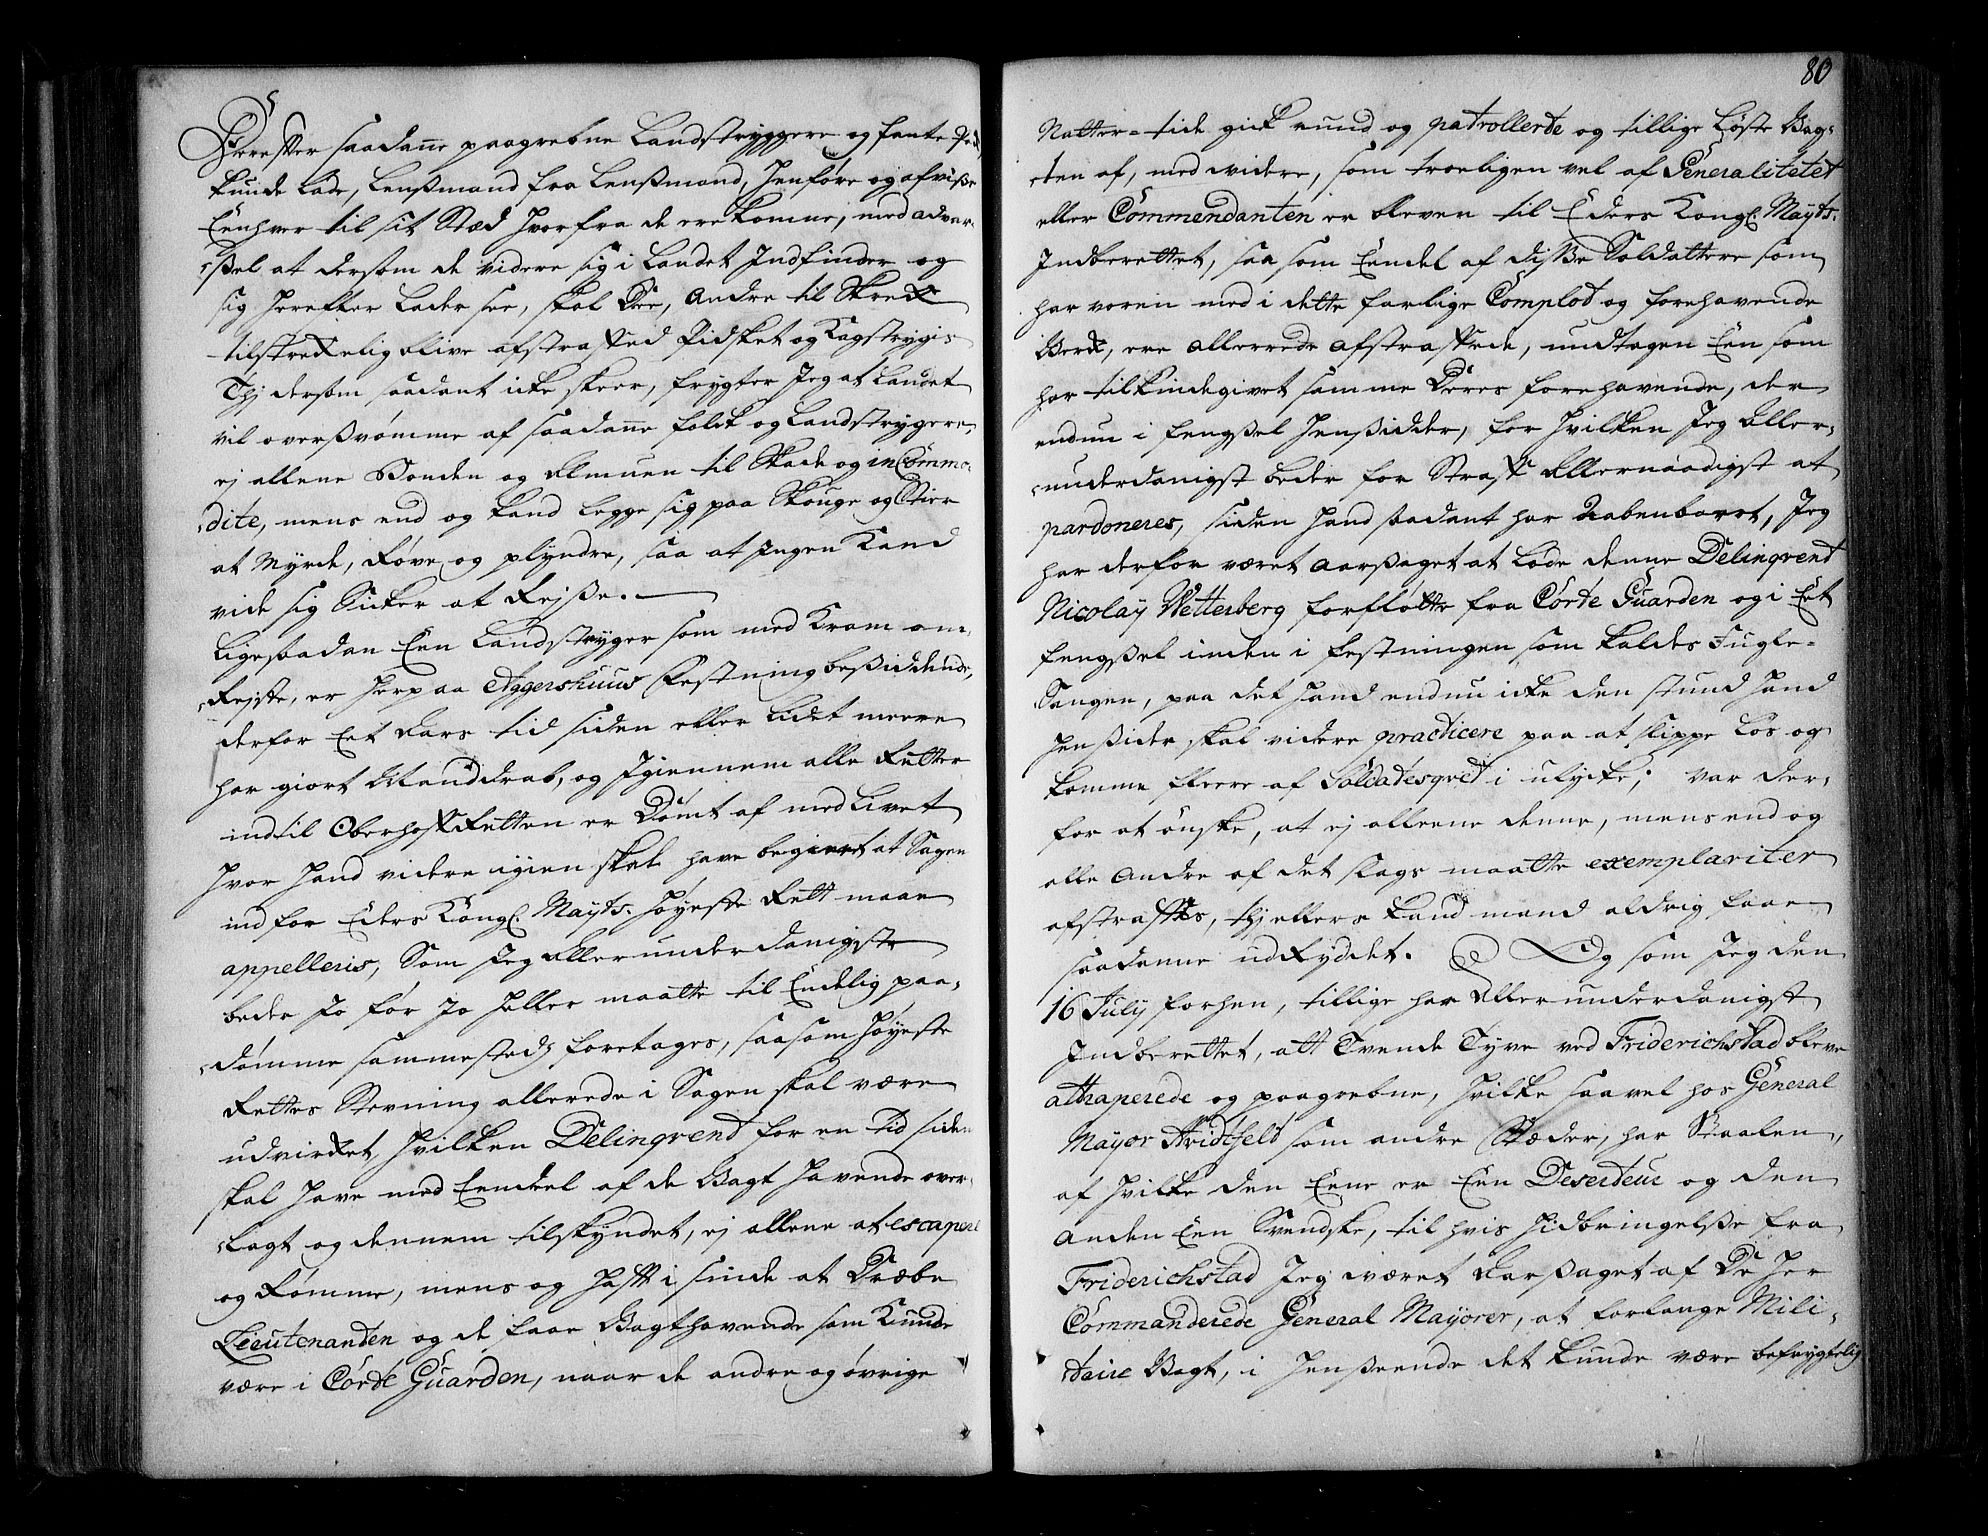 Derefter saadanne paagrebne Landstryggere og fante Pak
kunde lade, Lensmand fra Lensmand, henføre og afviise
Eenhver til sit Stæd hvorfra de ere komne, med advar,
,sel at dersom de videre sig i Landet Indfinder og
sig herefter lader see, skal Dee, Andre til Skrek
tilstrekelig blive afstraffed Pidsket og Kagstrygis
Thj dersom saadant icke skeer, frygter Jeg at Landet
vil oversvømme af saadanne folk og Landstrygere,
ej allene Bonden og Almuen til Skade og inCommo,
,dite, mens end og kand legge sig paa Skouge og Stier
at Myrde, Røve og plyndre, saa at Ingen Kand
vide sig Sicker at Rejse.
Ligesaadan Een Landstryger som med Kram om,
,Rejste, er her paa Aggershuus Festning besiddende,
derfor Eet Aars tid siden eller lidt meere
har giort Manddrab, og Igiennem alle Retter
indtil OberhofRetten er Dømt af med Livet
hvor hand videre igien skal have begieret at Sagen
ind for Eders Kongl. Mayts. Høyeste Rett maae
appelleris, Som Jeg Allerunderdanigste
beder Jo før Jo heller maatte til Endelig paa,
,dømme sammesteds foretages, saasom Høyeste
Rettes Stevning allerede i Sagen skal være
udvirket, hvilken Delinqvend for en tid siden
skal have med Eendeel af de Vagt havende over,
,lagt og dennem tilskyndet, ej allene at escapere
og Rømme, mens og haft i sinde at Dræbe
Lieutenanden og de faae Vagthavende som Kunde
være i Corde Guarden, naar de andre og øvrige
80
Natter-tide gick rund og patrollerte og tillige Løste Vag,
,ten af, med videre, som troeligen vel af Generalitetet
eller Commendanten er bleven til Eders Kongl. Mayts.
Indberettet, saa som Eendel af disse Soldattere som
har voren med i dette farlige Complot og forehavende
Verk, ere allerrede afstraffede, undtagen Een som
har tilkindegivet samme Deres forehavende, der
endnu i fengsel hensidder, for hvilken Jeg Aller,
,underdanigst beder for Straf Allernaadigst at
pardoneres, siden hand saadant har Aabenbaret, Jeg
har derfor været Aarsaget at lade denne Delinqvend
Nicolaÿ Wetterberg forflötte fra Corde Guarden og i Eet
fengsel inden i festningen som kaldes Fugle-
Sangen, paa det hand endnu icke den stund hand
hensider skal videre practicere paa at slippe løs og
komme fleere af Soldatesqvet i ulycke; var der,
for at ønske, at ej alleene denne, mens end og
alle Andre af det slags maatte exemplariter
afstraffes, thj ellers kand mand aldrig faae
saadanne udryddet. Og som Jeg den
16 July forhen, tillige har Allerunderdanigst
Indberettet, att Tvende Tyve ved Friderichstad bleve
attraperede og paagrebne, hvilke saavel hos General
Mayor Hvidtfeld som andre Stæder, har Staalen,
af hvilke den Eene er Een Deserteur og den
Anden Een Svendske, til hvis hidbringelse fra
Friderichstad Jeg været Aarsaget af De her
Commanderede General Mayorer, at forlange Mili,
,taire Vagt, i henseende det kunde være befrygtelig